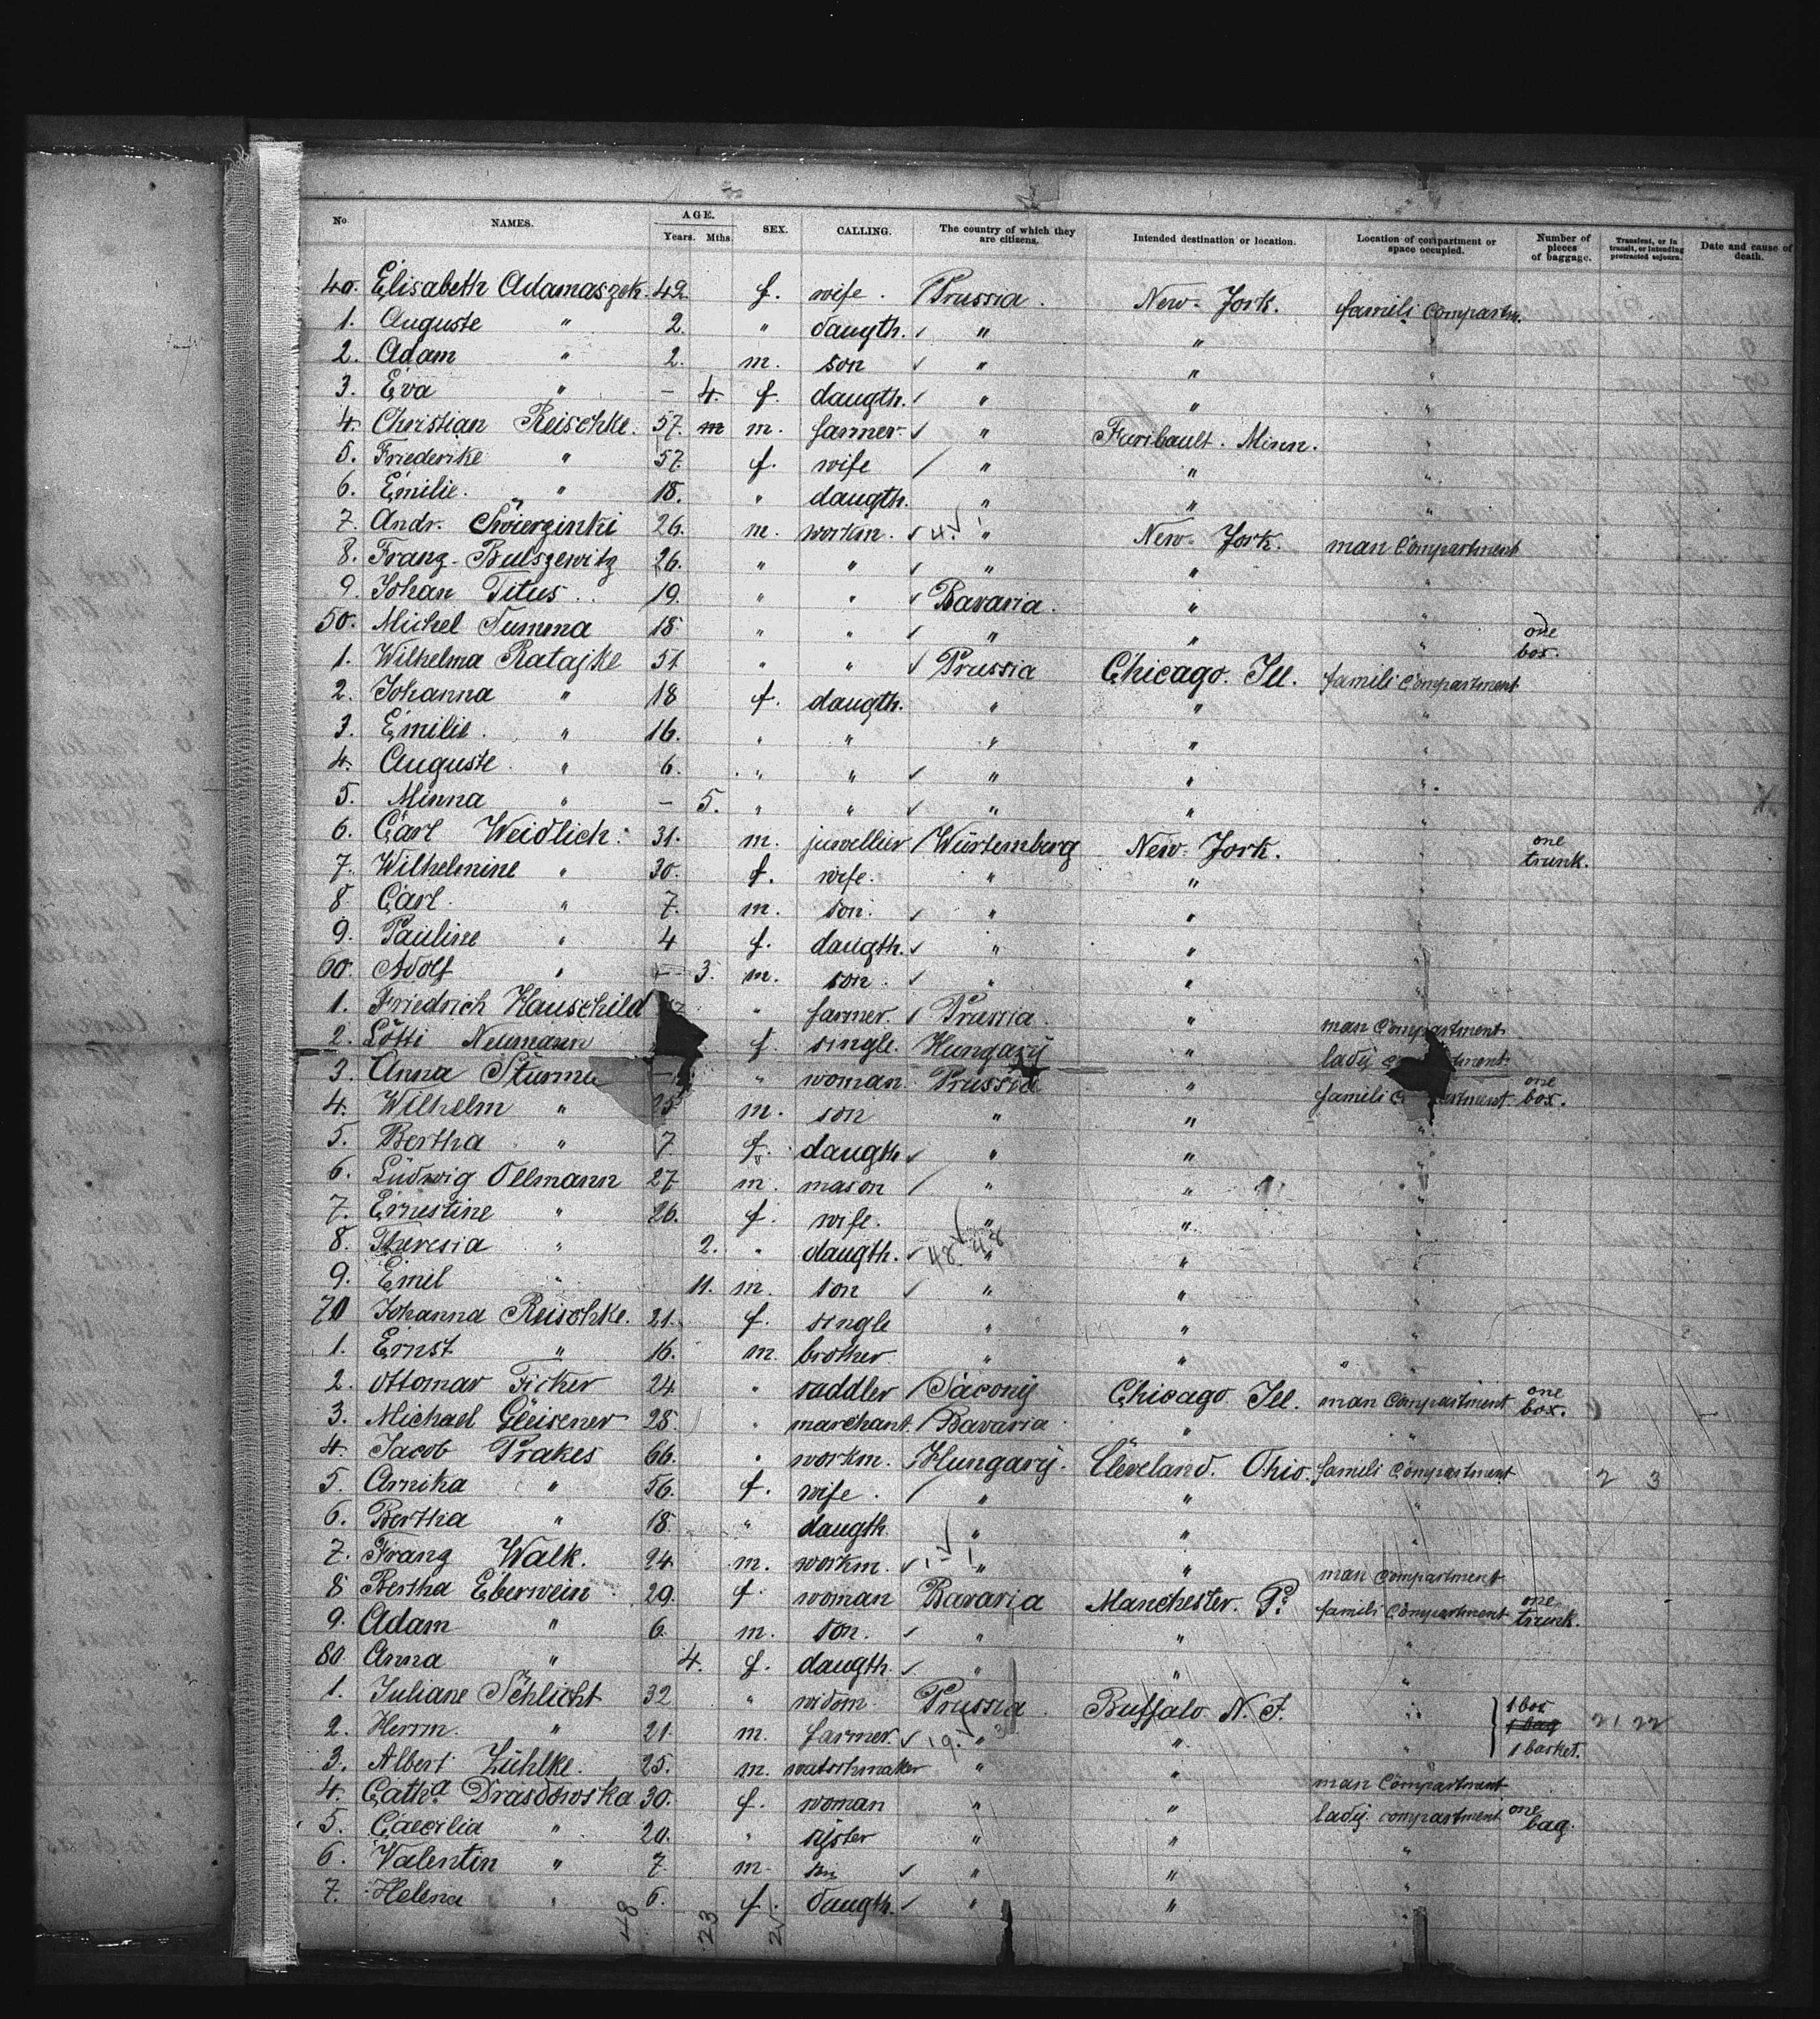 No NAMES. AGE. Years. Mths. SEX. CALLING. The country of which they are citizens. Intended destination or location. Location of compartment or space occupied. Number of pieces of baggage. Transient, or in transit, or intending protracted sojourn. Date and cause of death.
40. Elisabeth Adamaszek. 42. f. wife. Prussia. New-York. famili Compartm.
1. Auguste " 2. " daugth. " "
2. Adam " 2. m. son " " "
3. Eva " – 4. f. daugth. " " "
4. Christian Reischke. 57. m. farmer. " Faribault. Minn. "
5. Friederike " 57. f. wife " " "
6. Emilie. " 18. " daugth. " " "
7. Andr. Swierzinki 26. m. workm. 4. " New-York. man Compartment
8. Franz Bulszewitz 26. " " " " "
9. Johan Titus. 19. " " Bavaria. " "
50. Michel Tumma 18. " " " " " one box.
1. Wilhelma Ratajke 51. " " Prussia Chicago. Ill. famili Compartment
2. Johanna " 18 f. daugth. " " "
3. Emilie. " 16. " " " " "
4. Auguste. " 6. " " " " "
5. Minna " – 5. " " " " "
6. Carl Weidlich. 31. m. juwellier Würtemberg New-York. " one trunk.
7. Wilhelmine " 30. f. wife. " " "
8 Carl. " 7. m. son. " " "
9. Pauline " 4 f. daugth. " " "
60. Adolf " – 3. m. son. " " "
1. Friedrich Hauschild " farmer. Prussia. " man Compartment
2. Lotti Neumann f. single. Hungary " lady
3. Anna " woman. Prussia " famili one box.
4. Wilhelm " 25 m. son " " "
5. Bertha " 7. f. daugth " " "
6. Ludwig Ollmann 27. m. mason " " "
7. Ernestine " 26. f. wife. " " "
8. Theresia " 2. " daugth. 48. 48 " "
9. Emil " 11. m. son " " "
70 Johanna Reischke. 21. f. single " " "
1. Ernst " 16. m. brother " " "
2. Ottomar Ficker 24. " saddler Sacony Chicago Ill. man Compartment one box.
3. Michael Gleisener 28. " marchant. Bavaria " "
4. Jacob Prakes 66. " workm. Hungary. Cleveland. Ohio. famili Compartment 2 3
5. Arnika " 56. f. wife. " " "
6. Bertha " 18. " daugth " " "
7. Franz Walk. 24. m. workm. " " man Compartment
8 Bertha Eberwein 29. f. woman Bavaria Manchester. Pa. famili Compartment one trunk.
9. Adam " 6. m. son. " " "
80. Anna " 4. f. daugth. " " "
1. Juliane Schlicht 32 " widow Prussia. Buffalo N.J. " 1 box
2. Herrm. " 21. m. farmer. 19. " 3 " " 1 bag 21 22
1 basket.
3. Albert Zühlke. 25. m. watschmaker " " man Compartment
4. Catha Drasdowska 30. f. woman " " lady. compartment one bag.
5. Caecilia " 20. " syster " " "
6. Valentin " 7. m. son " " "
7. Helena " 6. f. daugth. " " "
48 23 21